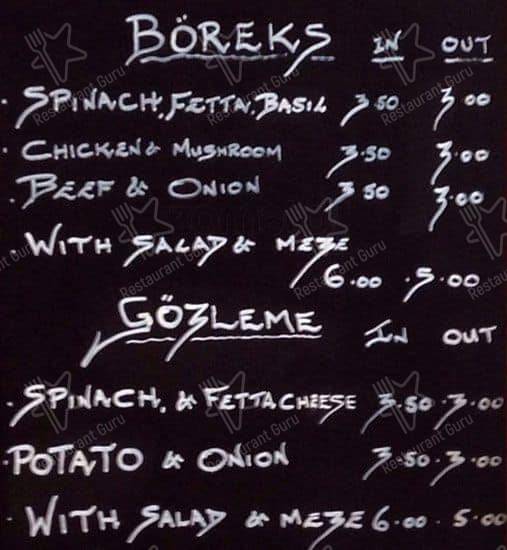 BÖREKS IN OUT
· SPINACH, FETTA, BASIL 3 50 3 00
· CHICKEN & MUSHROOM 3.50 3.00
· BEEF & ONION 3 50 3.00
· WITH SALAD & MEZE
6.00 .5.00
GÖZLEME IN OUT
· SPINACH, & FETTA CHEESE 3.50 .3.00
· POTATO & ONION 3.50 .3.00
· WITH SALAD & MEZE 6.00 . 5.00
Restaurant Guru